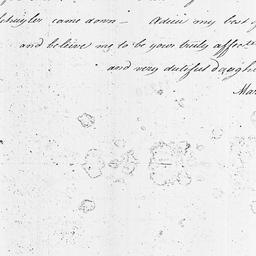 Schuyler came down — Adieu my best
and believe me to be your truly affec
and very dutiful daugh
Mar